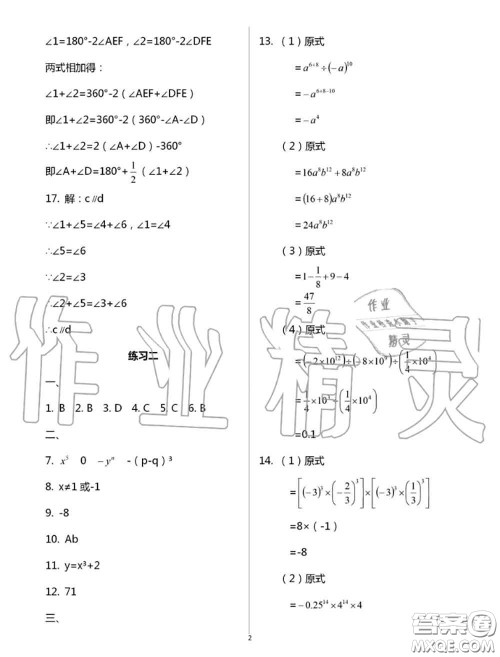 ∠1=180°-2∠AEF，∠2=180°-2∠DFE
两式相加得：
∠1+∠2=360°-2（∠AEF+∠DFE）
即∠1+∠2=360°-2（360°-∠A-∠D）
∴∠1+∠2=2（∠A+∠D）-360°
即∠A+∠D=180°+1/2（∠1+∠2）
17. 解：c∥d
∵∠1+∠5=∠4+∠6，∠1=∠4
∴∠5=∠6
∵∠2=∠3
∴∠2+∠5=∠3+∠6
∴c∥d
练习二
一、
1. B 2. B 3. D 4. C 5. C 6. B
二、
7. x⁵ 0 -yⁿ -（p-q）³
8. x≠1 或-1
9. -8
10. Ab
11. y=x³+2
12. 71
三、
13. （1）原式
=a⁶⁺⁸÷(-a)¹⁰
=-a⁶⁺⁸⁻¹⁰
=-a⁴
（2）原式
=16a⁸b¹²+8a⁸b¹²
=(16+8)a⁸b¹²
=24a⁸b¹²
（3）原式
=1-1/8+9-4
=47/8
（4）原式
=(-2×10¹²)÷(-8×10⁹)÷(1/4×10⁴)
=1/4×10⁴÷(1/4×10⁴)
=0.1
14. （1）原式
=[(-3)³×(-2/3)³]×[(-3)³×(1/3)³]
=8×（-1）
=-8
（2）原式
=-0.25¹⁴×4¹⁴×4
2
作业精灵
作业
精灵
答案圈
MXQE.COM